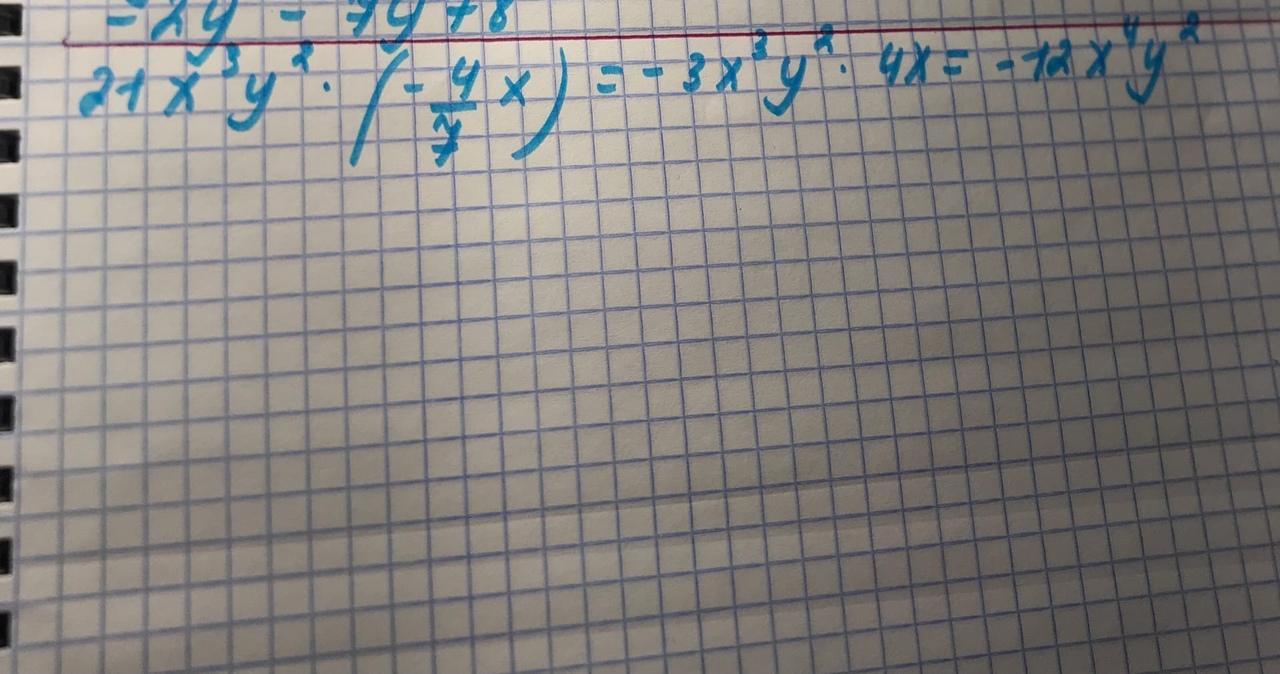 -2y - 7y + 8
21x³y² · (-4/7 x) = -3x³y² · 4x = -12x⁴y²